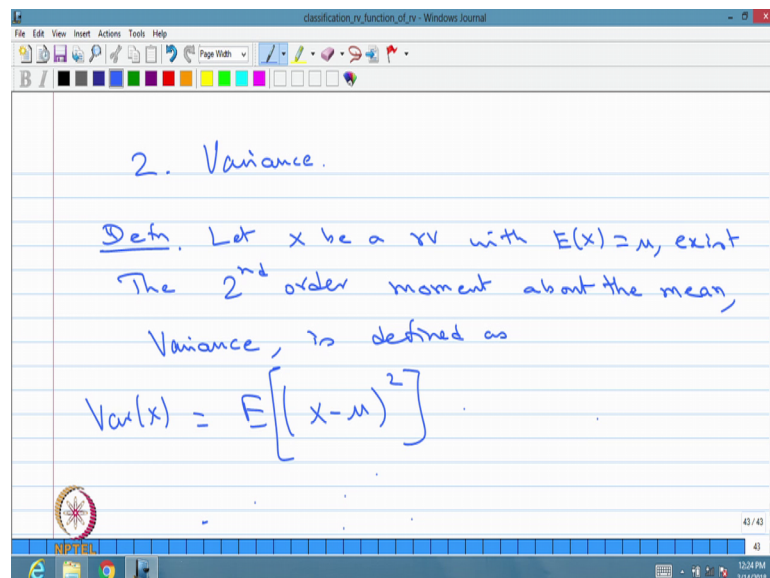 classification_rv_function_of_rv - Windows Journal
File Edit View Insert Actions Tools Help
Page Width
B I
2. Variance.
Defn. Let X be a rv with E(X) = μ, exist
The 2nd order moment about the mean,
Variance, is defined as
Var(x) = E[(X-μ)²]
43/43
NPTEL
43
12:24 PM